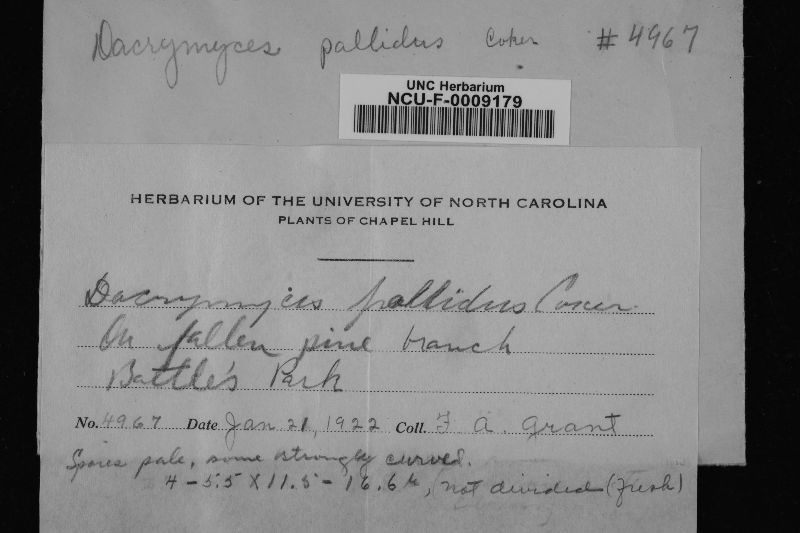 Dacrymyces pallidus Coker #4967
UNC Herbarium
NCU-F-0009179
HERBARIUM OF THE UNIVERSITY OF NORTH CAROLINA
PLANTS OF CHAPEL HILL
Dacrymyces pallidus Coker.
On fallen pine branch
Battle's Park
No. 4967 Date Jan 21, 1922 Coll. F A. Grant
Spores pale, some strongly curved.
4-5.5 X 11.5-16.6µ, (not divided (fresh)